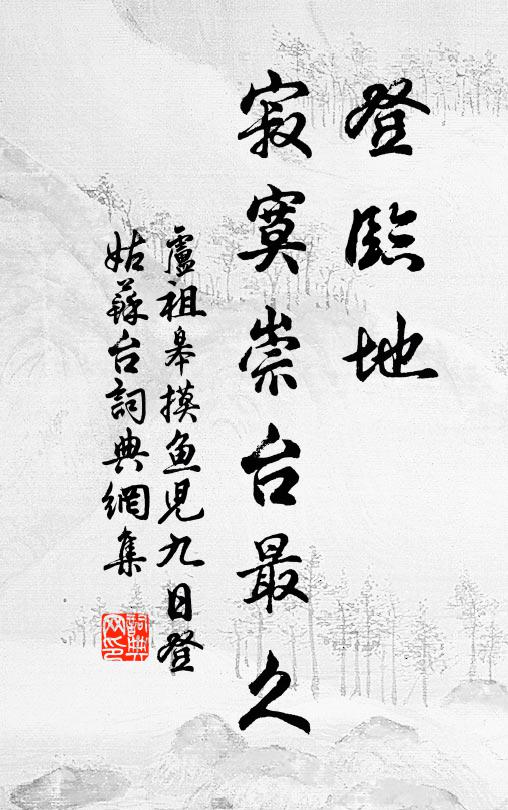 登臨地
寂寞崇台最久
盧祖皋摸鱼児九日登
姑蘇台詞典網集
詞典網印